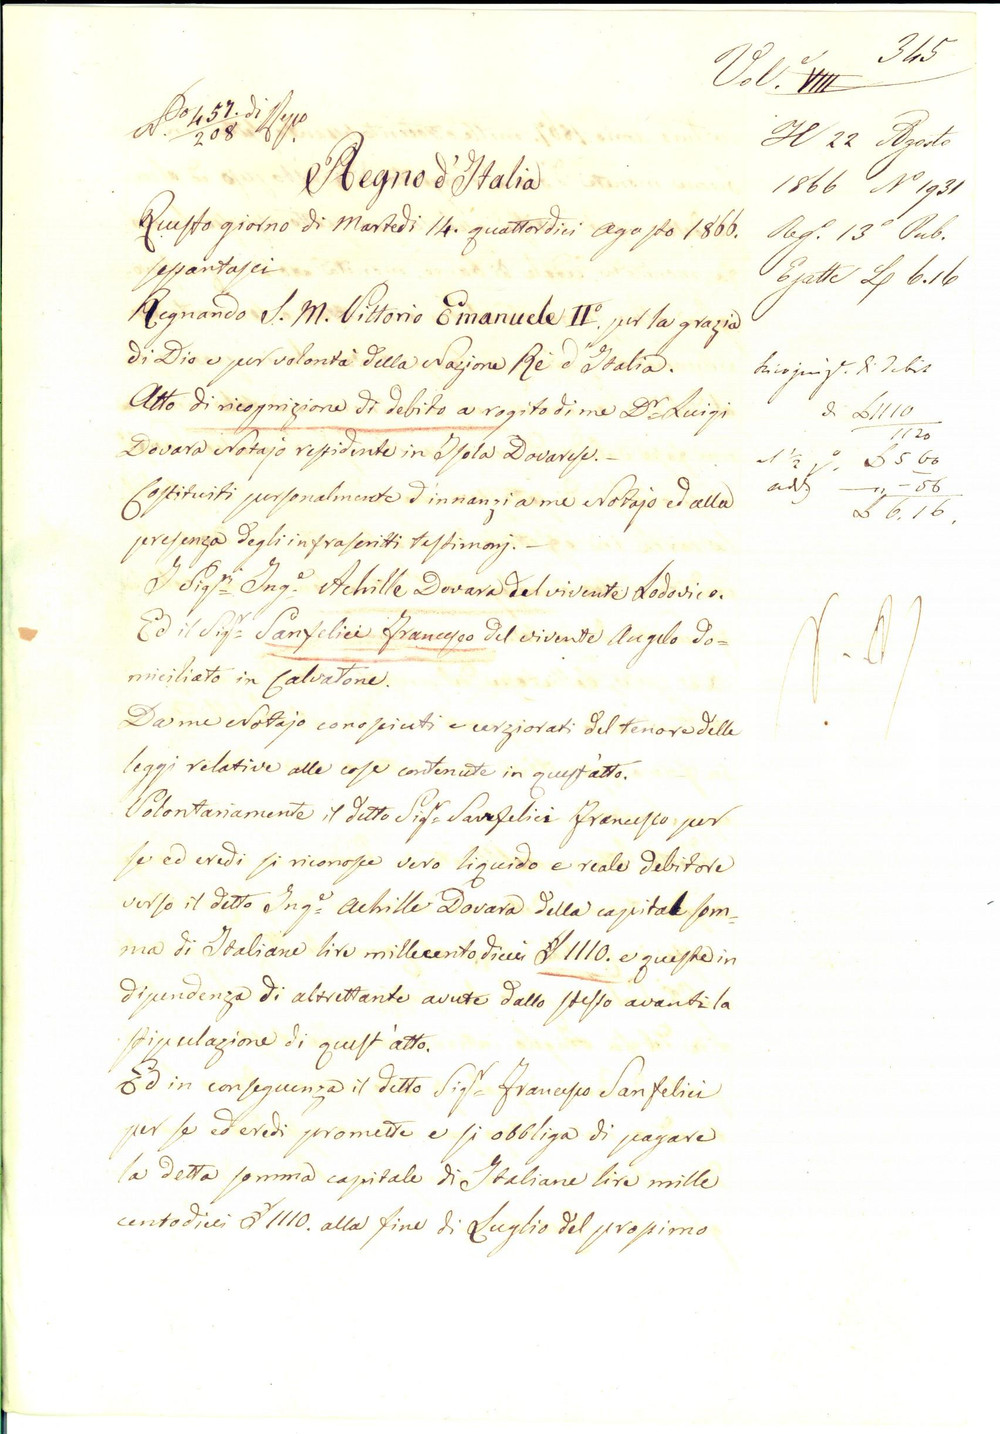 345
Vol.e VIII
N.o 457. di Rep.o
208
Regno d'Italia
Questo giorno di Martedi 14. quattordici Agosto 1866.
sessantasei
Regnando S. M. Vittorio Emanuele II.o per la grazia
di Dio e per volontà della Nazione Rè d'Italia.
Atto di ricognizione di debito a rogito di me Dr. Luigi
Dovara Notajo residente in Isola Dovarese. –
Costituiti personalmente d'innanzi a me Notajo ed alla
presenza degli infrascritti testimonj. –
I Sig.ri Ing.e Achille Dovara del vivente Lodovico.
Ed il Sig.r Sanfelici Francesco del vivente Angelo do=
miciliato in Calvatone.
Da me Notajo conosciuti e cerziorati del tenore delle
leggi relative alle cose contenute in quest'atto.
Volontariamente il detto Sig.r Sanfelici Francesco per
se ed eredi si riconosce vero liquido e reale debitore
verso il detto Ing.e Achille Dovara della capitale som=
ma di Italiane lire millecentodieci £ 1110. e queste in
dipendenza di altrettante avute dallo stesso avanti la
stipulazione di quest'atto.
Ed in conseguenza il detto Sig.r Francesco Sanfelici
per se ed eredi promette e si obbliga di pagare
la detta somma capitale di Italiane lire mille
centodieci £ 1110. alla fine di Luglio del prossimo
Il 22 Agosto
1866 N.o 1931
Reg.o 13.o Pub.
Esatte L. 6.16
di debito
di £ 1110
1120
£ 5 60
– 56
£ 6.16.